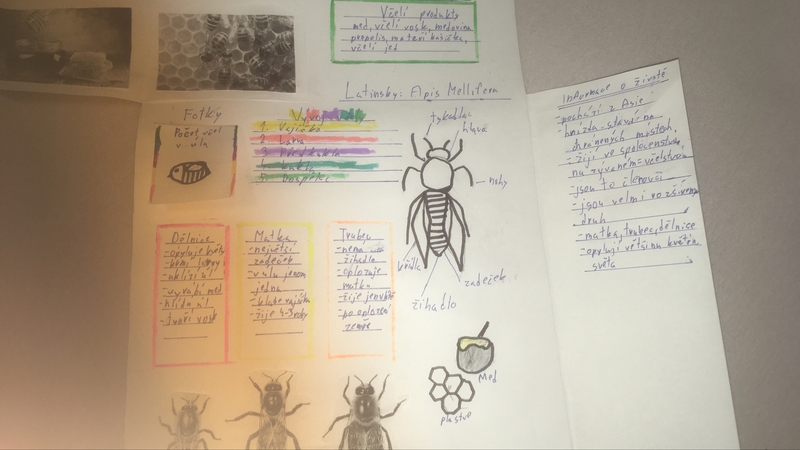 Včelí produkty
med, včelí vosk, medovina
propolis, mateří kašička,
včelí jed
Latinsky: Apis Mellifera
Fotky
Počet včel
v úlu
Vývoj včely
1. Vajíčko
2. Larva
3. Předkukla
4. Kukla
5. Dospělec
tykadla
hlava
nohy
křídla
zadeček
žihadlo
Dělnice
-opyluje květy
-krmí larvy
-uklízí úl
-vyrábí med
-hlídá úl
-tvoří vosk
Matka
-největší
zadeček
-v úlu jenom
jedna
-klade vajíčka
-žije 4-5 roky
Trubec
-nemá
žihadlo
-oplozuje
matku
-žije jen v létě
-po oplození
zemře
Med
plástve
Informace o životě
-pochází z Asie
-hnízda staví na
chráněných místech,
-žijí ve společenstvu
nazývaném=včelstvo
-jsou to členovci
-jsou velmi rozšířený
druh
-matka, trubec, dělnice
-opylují většinu květin
světa